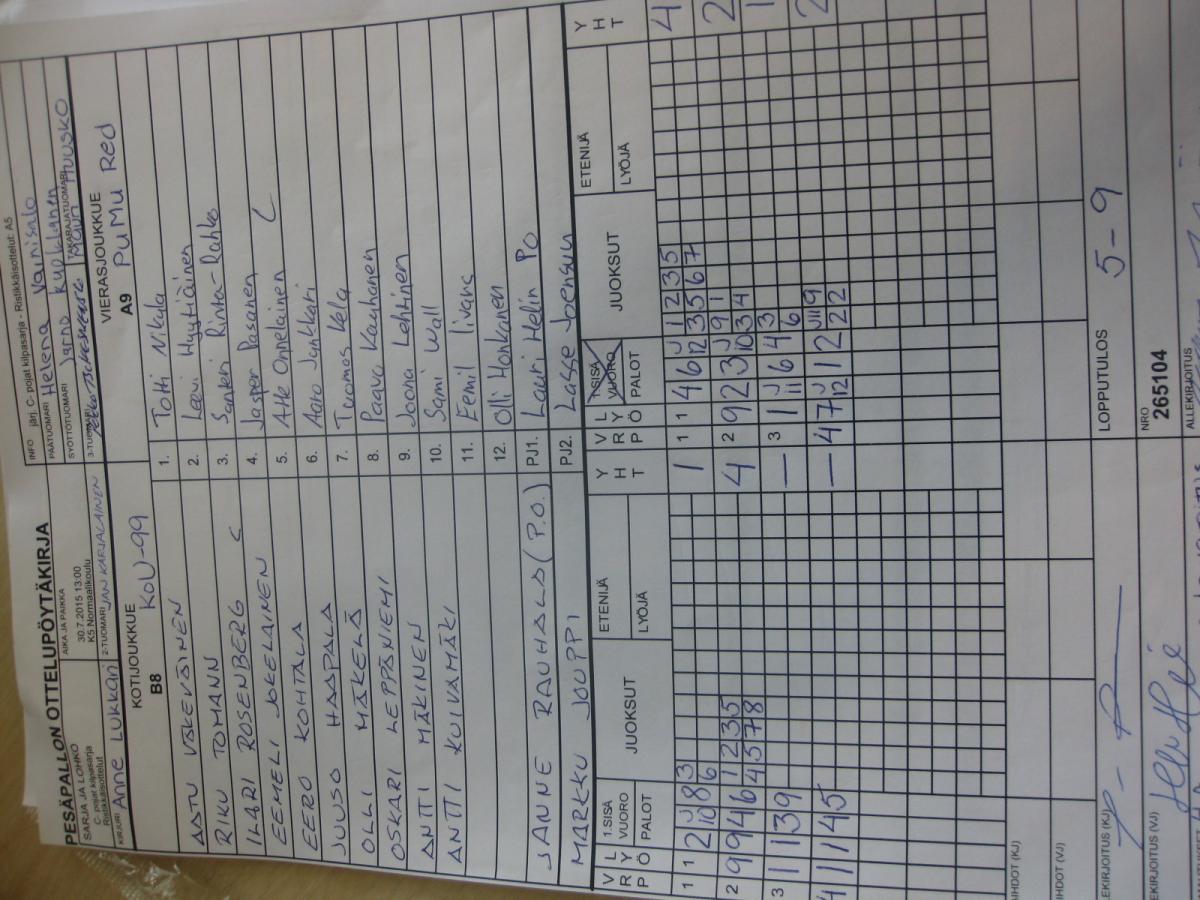 PESÄPALLON OTTELUPÖYTÄKIRJA
INFO järj. C- pojat kilpasarja - Ristikkäisottelut: A5
SARJA JA LOHKO
C- pojat kilpasarja
Ristikkäisottelut
AIKA JA PAIKKA
30.7.2015 13:00
K5 Normaalikoulu
PÄÄTUOMARI Helena Vainisalo
SYÖTTÖTUOMARI Jarno Kupkalanen
KIRJURI Anne Lukkari
2-TUOMARI JAN KARJALAINEN
3-TUOMARI
TAKARAJATUOMARI
HUUSKO
KOTIJOUKKUE
B8 KoU-99
VIERASJOUKKUE
A9 PuMu Red
AATU VÄKEVÄINEN 1. Totti Nikula
RIKU TOMANN 2. Leevi Hyytiäinen
ILARI ROSENBERG C 3. Santeri Rinta-Rahko
EEMELI JOKELAINEN 4. Jasper Pasanen
EERO KOHTALA 5. Atte Onnelainen C
JUUSO HAAPALA 6. Aaro Jankkari
OLLI MÄKELÄ 7. Tuomas Kela
OSKARI LEPPÄNIEMI 8. Paavo Kauhanen
ANTTI MÄKINEN 9. Joona Lehtinen
ANTTI KUIVAMÄKI 10. Sami Wall
11. Eemil Iivans
12. Olli Honkanen
JANNE RAUHALA (P.O.) PJ1. Lauri Helin PO
MARKKU JOUPPI PJ2. Lasse Joensuu
VRP LYÖ 1.SISÄ VUORO PALOT JUOKSUT ETENIJÄ LYÖJÄ YHT VRP LYÖ 1.SISÄ VUORO PALOT JUOKSUT ETENIJÄ LYÖJÄ YHT
1 1 2 J 10 8 3 6 1 1 1 4 6 J 12 1 2 3 5 3 5 6 7 4
2 9 9 4 6 1 2 3 5 4 5 7 8 4 2 9 2 3 J 10 9 1 3 4 2
3 1 1 3 9 — 3 1 J 11 6 4 3 6 1
4 1 1 4 5 — 4 7 J 12 1 2 J 11 9 2 2 2
LOPPUTULOS 5 - 9
NRO
265104
ALLEKIRJOITUS